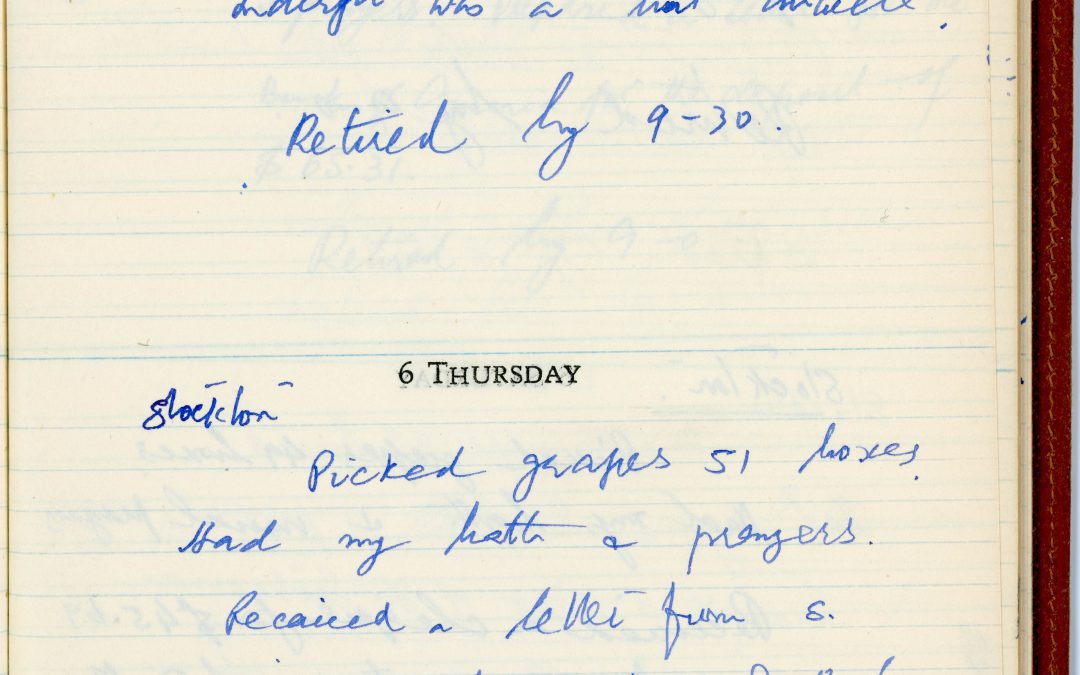 was a
Retired by 9-30.
6 THURSDAY
Stockton
Picked grapes 51 boxes.
Had my bath & prayers.
Recaived a letter from S.